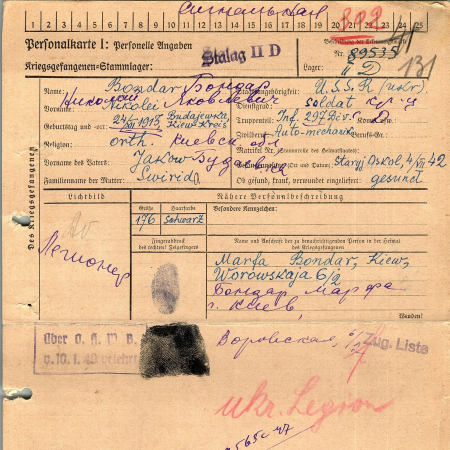 Сигнальная
1 2 3 4 5 6 7 8 9 10 11 12 13 14 15 16 17 18 19 20 21 22 23 24 25
302
41
Personalkarte I: Personelle Angaben
Stalag II D
Kriegsgefangenen-Stammlager:
Nr. 89535
Lager: II D
131
Des Kriegsgefangenen
Name: Bondar Бондар
Staatsangehörigkeit: U.S.S.R (ukr).
Vorname: Nikolei Николай Яковлевич
Dienstgrad: soldat
Geburtstag und -ort: 24/XII 1918, Budajewka, Kiew Kreis
Truppenteil: Inf. 297 Div.
Religion: orth. Киевск. обл
Zivilberuf: Auto-mechanik Berufs-Gr.:
Matrikel Nr. (Stammrolle des Heimatstaates):
Vorname des Vaters: Jakow Будаевка
Gefangennahme (Ort und Datum): Staryj Oskol, 4/VII 42
Familienname der Mutter: Swirida
Ob gesund, krank, verwundet eingeliefert: gesund
Lichtbild
Nähere Personalbeschreibung
Größe
Haarfarbe
Besondere Kennzeichen:
176
schwarz
Легионер
Fingerabdruck
des rechten! Zeigefingers
Name und Anschrift der zu benachrichtigenden Person in der Heimat
des Kriegsgefangenen
Marfa Bondar, Kiew,
Worowskaja 6/2
Бондар Марфа
г. Киев,
Wenden!
Воровская,
Zug. Liste
ukr. Legion